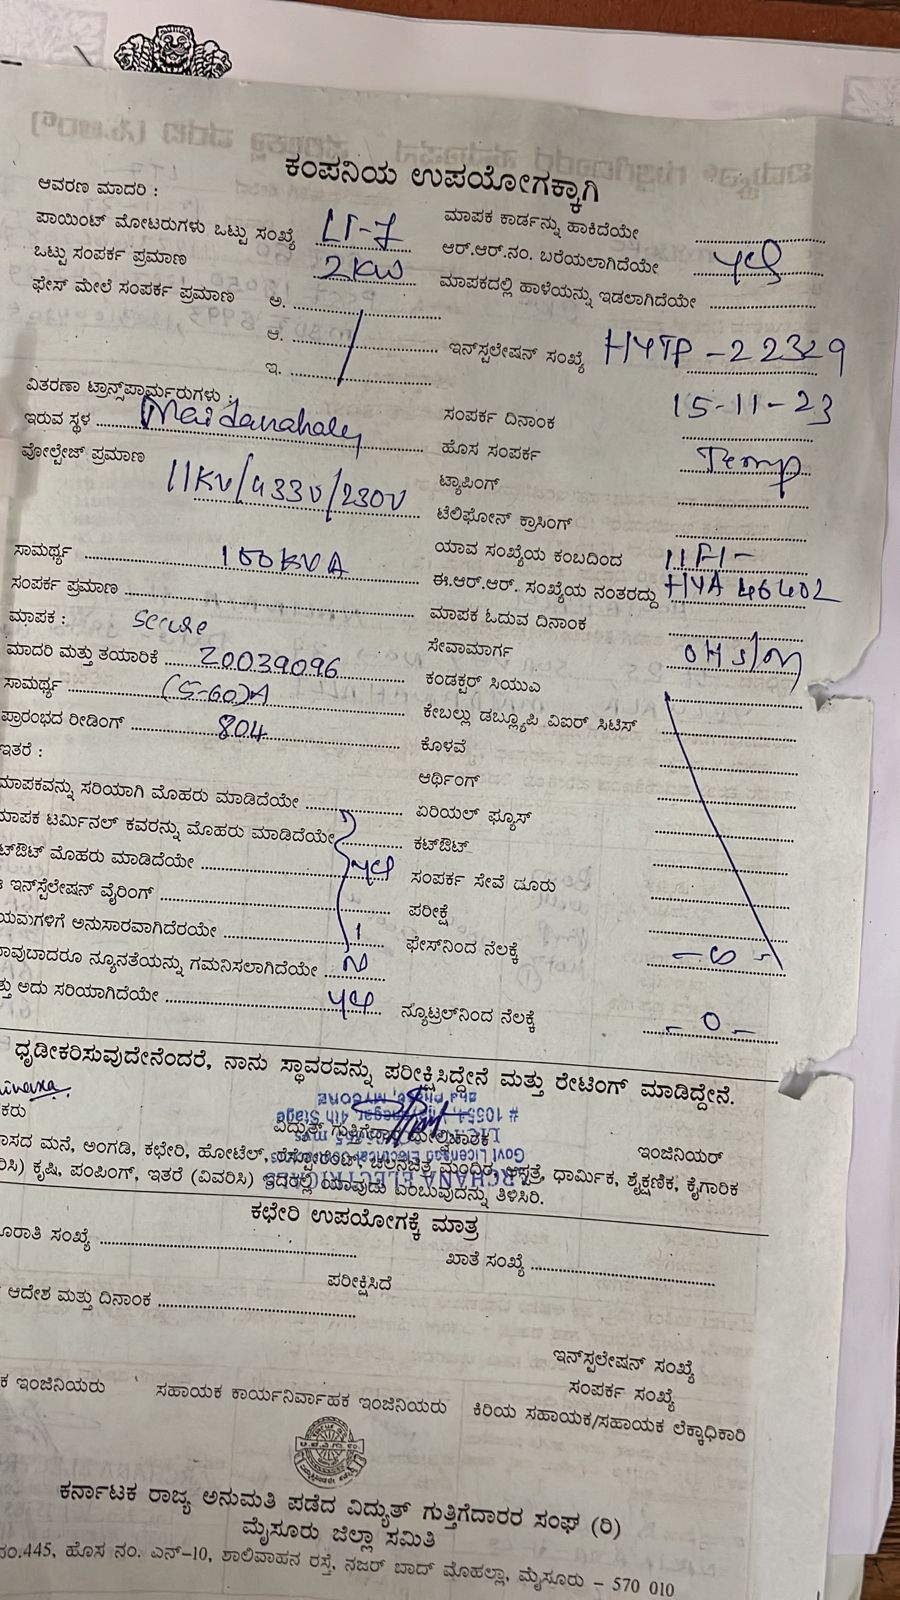 ಕಂಪನಿಯ ಉಪಯೋಗಕ್ಕಾಗಿ
ಆವರಣ ಮಾದರಿ :
ಮಾಪಕ ಕಾರ್ಡನ್ನು ಹಾಕಿದೆಯೇ
ಪಾಯಿಂಟ್ ಮೋಟರುಗಳು ಒಟ್ಟು ಸಂಖ್ಯೆ LT-7
ಆರ್.ಆರ್.ನಂ. ಬರೆಯಲಾಗಿದೆಯೇ
ಒಟ್ಟು ಸಂಪರ್ಕ ಪ್ರಮಾಣ 2KW
ಮಾಪಕದಲ್ಲಿ ಹಾಳೆಯನ್ನು ಇಡಲಾಗಿದೆಯೇ
ಫೇಸ್ ಮೇಲೆ ಸಂಪರ್ಕ ಪ್ರಮಾಣ ಅ.
ಆ.
ಇ.
ಇನ್‌ಸ್ಟಲೇಷನ್ ಸಂಖ್ಯೆ HYTP-22329
ವಿತರಣಾ ಟ್ರಾನ್ಸ್‌ಪಾರ್ಮರುಗಳು :
ಸಂಪರ್ಕ ದಿನಾಂಕ 15-11-23
ಇರುವ ಸ್ಥಳ Maidanahaly
ಹೊಸ ಸಂಪರ್ಕ Temp
ವೋಲ್ಟೇಜ್ ಪ್ರಮಾಣ 11KV/433V/230V
ಟ್ಯಾಪಿಂಗ್
ಟೆಲಿಫೋನ್ ಕ್ರಾಸಿಂಗ್
ಸಾಮರ್ಥ್ಯ 100KVA
ಯಾವ ಸಂಖ್ಯೆಯ ಕಂಬದಿಂದ
ಸಂಪರ್ಕ ಪ್ರಮಾಣ
ಈ.ಆರ್.ಆರ್. ಸಂಖ್ಯೆಯ ನಂತರದ್ದು HYA 46402
ಮಾಪಕ : Secure
ಮಾಪಕ ಓದುವ ದಿನಾಂಕ
ಮಾದರಿ ಮತ್ತು ತಯಾರಿಕೆ 20039096
ಸೇವಾಮಾರ್ಗ
ಸಾಮರ್ಥ್ಯ (5-60)A
ಕಂಡಕ್ಟರ್ ಸಿಯುಎ
ಪ್ರಾರಂಭದ ರೀಡಿಂಗ್ 804
ಕೇಬಲ್ಲು ಡಬ್ಲ್ಯೂಪಿ ವಿಐರ್ ಸಿಟಿಸ್
ಇತರೆ :
ಕೊಳವೆ
ಆರ್ಥಿಂಗ್
ಮಾಪಕವನ್ನು ಸರಿಯಾಗಿ ಮೊಹರು ಮಾಡಿದೆಯೇ
ಏರಿಯಲ್ ಫ್ಯೂಸ್
ಮಾಪಕ ಟರ್ಮಿನಲ್ ಕವರನ್ನು ಮೊಹರು ಮಾಡಿದೆಯೇ
ಕಟ್‌ಔಟ್
ಟ್‌ಔಟ್ ಮೊಹರು ಮಾಡಿದೆಯೇ
ಸಂಪರ್ಕ ಸೇವೆ ದೂರು
ಇನ್‌ಸ್ಟೆಲೇಷನ್ ವೈರಿಂಗ್
ಪರೀಕ್ಷೆ
ಯಮಗಳಿಗೆ ಅನುಸಾರವಾಗಿದೆರಯೇ
ಫೇಸ್‌ನಿಂದ ನೆಲಕ್ಕೆ
ಾವುದಾದರೂ ನ್ಯೂನತೆಯನ್ನು ಗಮನಿಸಲಾಗಿದೆಯೇ
ತ್ತು ಅದು ಸರಿಯಾಗಿದೆಯೇ
ನ್ಯೂಟ್ರಲ್‌ನಿಂದ ನೆಲಕ್ಕೆ - 0 -
ಧೃಡೀಕರಿಸುವುದೇನೆಂದರೆ, ನಾನು ಸ್ಥಾವರವನ್ನು ಪರೀಕ್ಷಿಸಿದ್ದೇನೆ ಮತ್ತು ರೇಟಿಂಗ್ ಮಾಡಿದ್ದೇನೆ.
ಕರು
ವಿದ್ಯುತ್ ಗುತ್ತಿಗೆದಾರ ಮೇಲ್ವಿಚಾರಕ
ಇಂಜಿನಿಯರ್
ಾಸದ ಮನೆ, ಅಂಗಡಿ, ಕಛೇರಿ, ಹೋಟೆಲ್, ರೆಸ್ಟೋರೆಂಟ್, ಚಲನಚಿತ್ರ ಮಂದಿರ, ಆಸ್ಪತ್ರೆ, ಧಾರ್ಮಿಕ, ಶೈಕ್ಷಣಿಕ, ಕೈಗಾರಿಕ
ರಿಸಿ) ಕೃಷಿ, ಪಂಪಿಂಗ್, ಇತರೆ (ವಿವರಿಸಿ) ಇದಕ್ಕಲ್ಲಿ ಯಾವುದು ಎಂಬುವುದನ್ನು ತಿಳಿಸಿರಿ.
ಕಛೇರಿ ಉಪಯೋಗಕ್ಕೆ ಮಾತ್ರ
ೂರಾತಿ ಸಂಖ್ಯೆ
ಖಾತೆ ಸಂಖ್ಯೆ
ಪರೀಕ್ಷಿಸಿದೆ
ಆದೇಶ ಮತ್ತು ದಿನಾಂಕ
ಇನ್‌ಸ್ಟಲೇಷನ್ ಸಂಖ್ಯೆ
ಸಂಪರ್ಕ ಸಂಖ್ಯೆ
ಕ ಇಂಜಿನಿಯರು
ಸಹಾಯಕ ಕಾರ್ಯನಿರ್ವಾಹಕ ಇಂಜಿನಿಯರು
ಕಿರಿಯ ಸಹಾಯಕ/ಸಹಾಯಕ ಲೆಕ್ಕಾಧಿಕಾರಿ
ಕರ್ನಾಟಕ ರಾಜ್ಯ ಅನುಮತಿ ಪಡೆದ ವಿದ್ಯುತ್ ಗುತ್ತಿಗೆದಾರರ ಸಂಘ (ರಿ)
ಮೈಸೂರು ಜಿಲ್ಲಾ ಸಮಿತಿ
ನಂ.445, ಹೊಸ ನಂ. ಎನ್-10, ಶಾಲಿವಾಹನ ರಸ್ತೆ, ನಜರ್ ಬಾದ್ ಮೊಹಲ್ಲಾ, ಮೈಸೂರು – 570 010